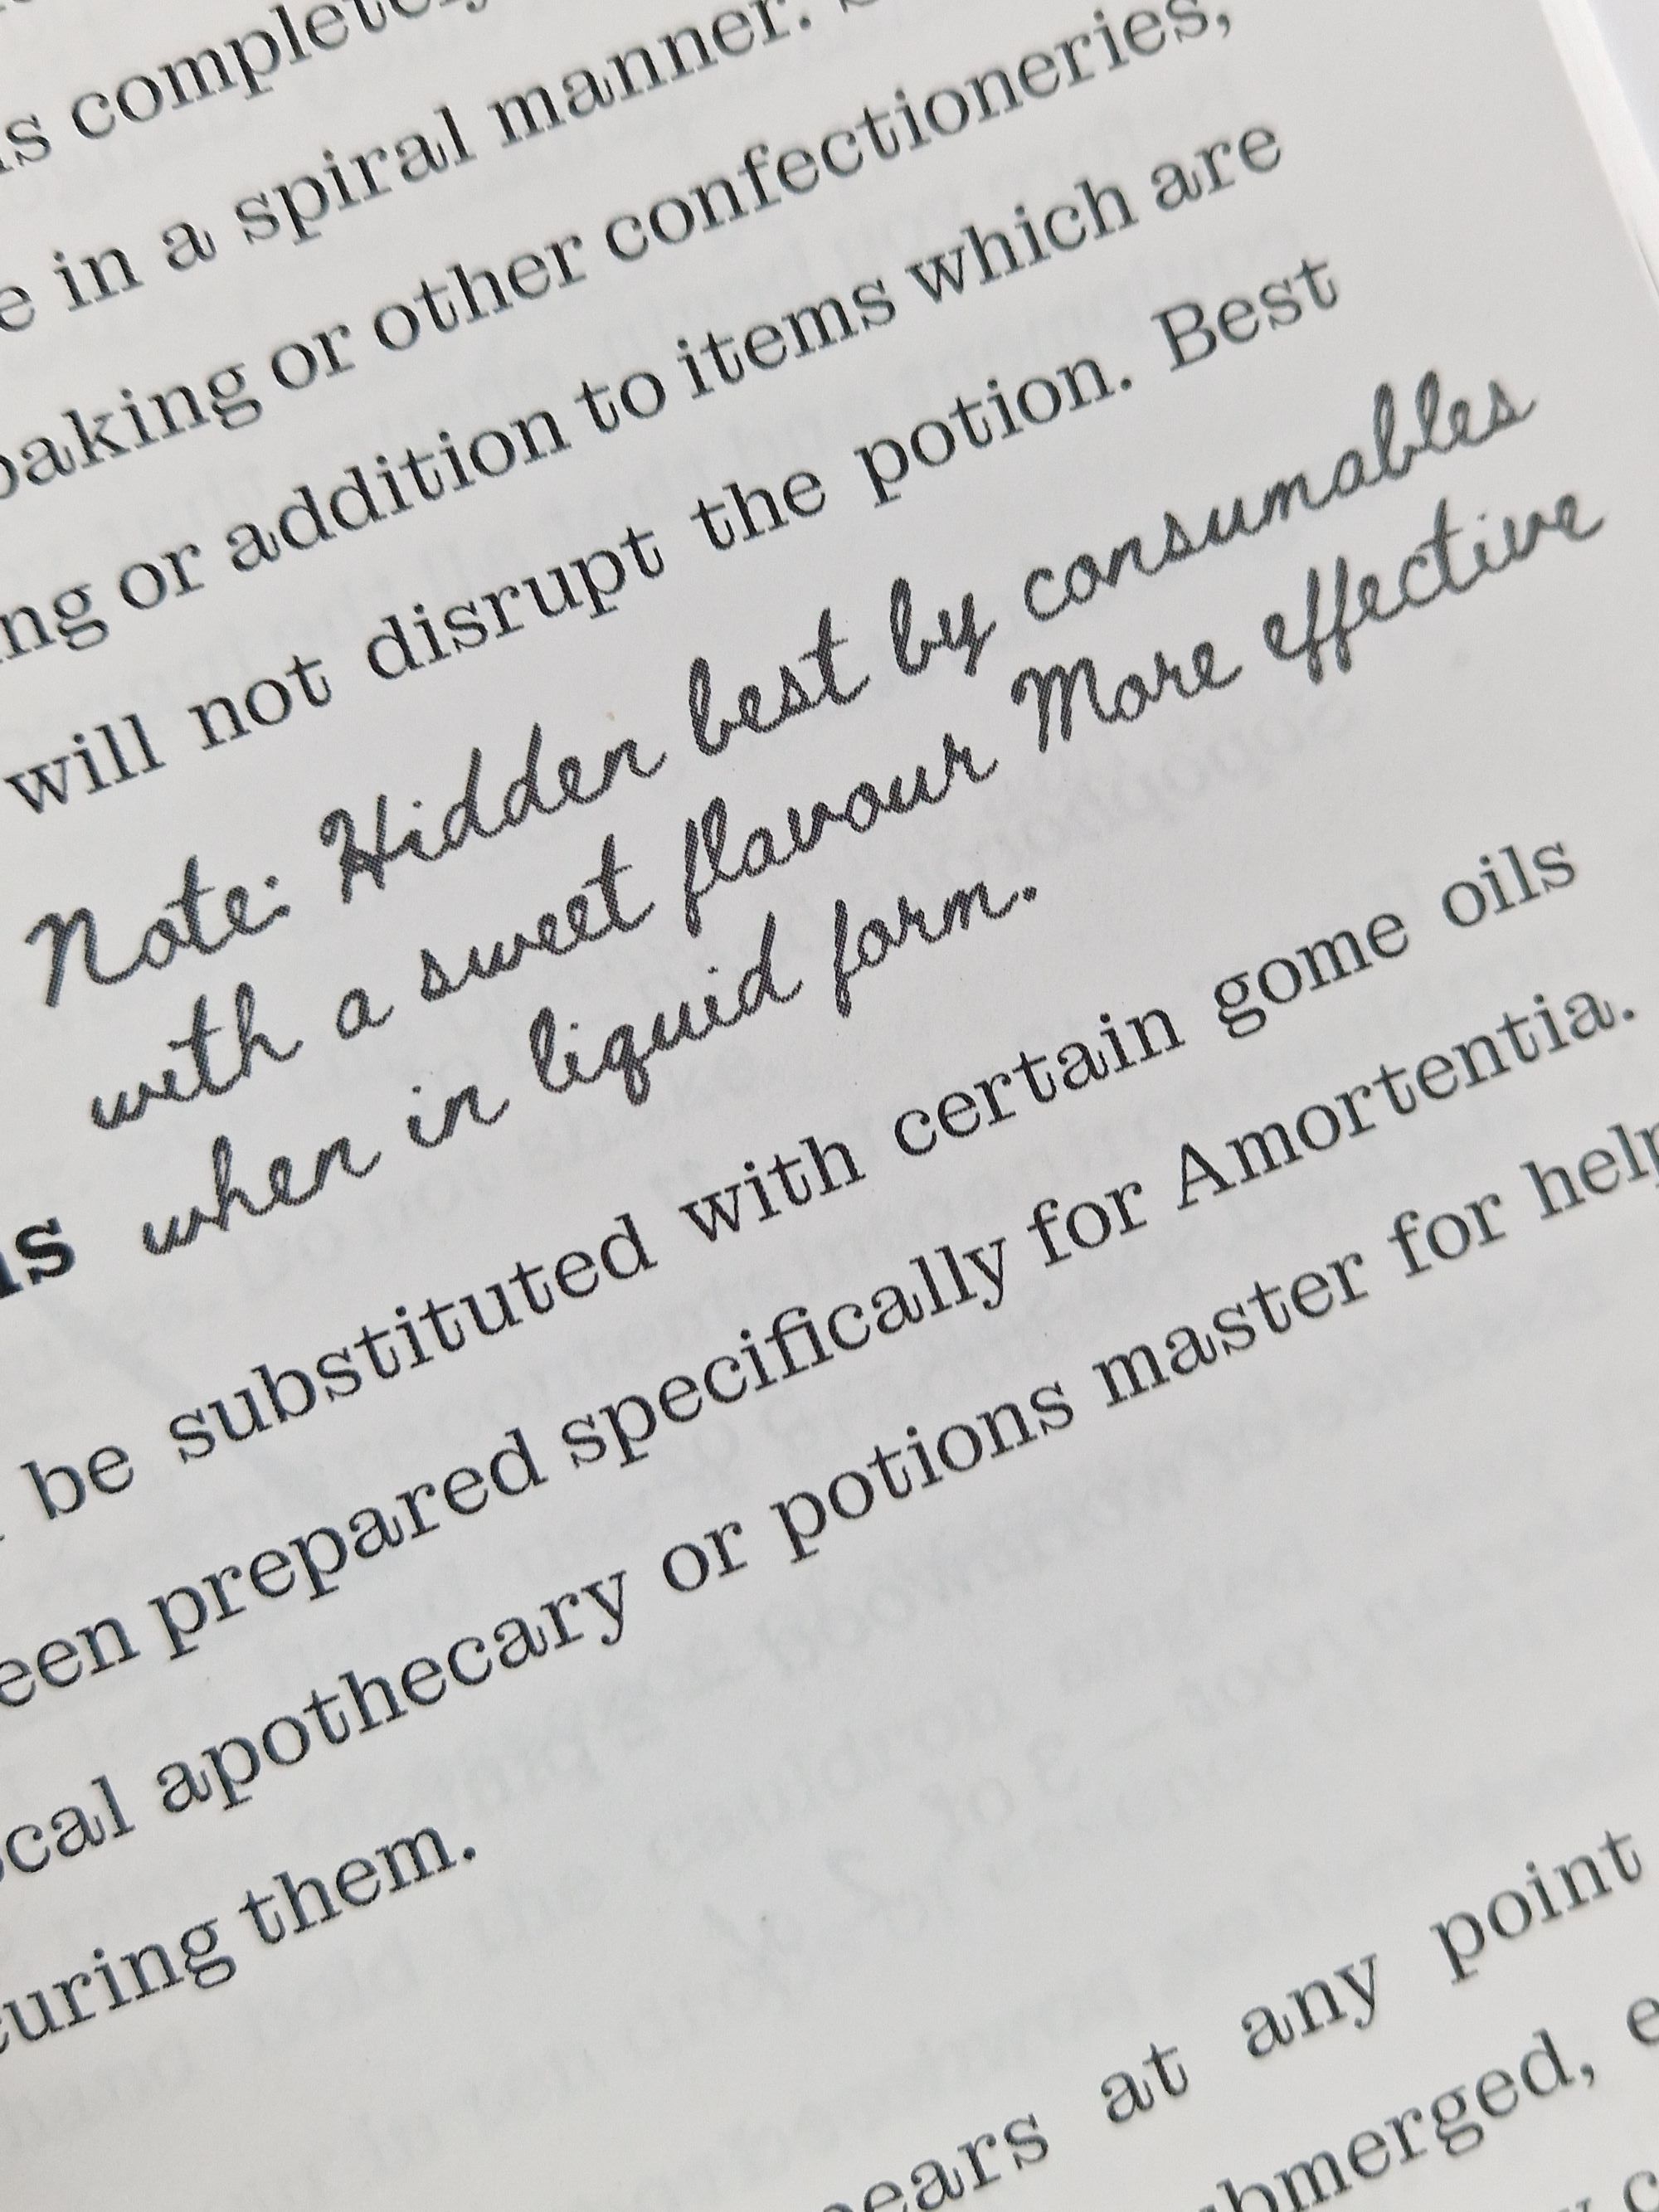 completely
in a spiral manner.
or other confectioneries,
or addition to items which are
will not disrupt the potion. Best
Note: Hidden best by consumables
with a sweet flavour More effective
when in liquid form.
be substituted with certain gome oils
prepared specifically for Amortentia.
apothecary or potions master for help
them.
at any point